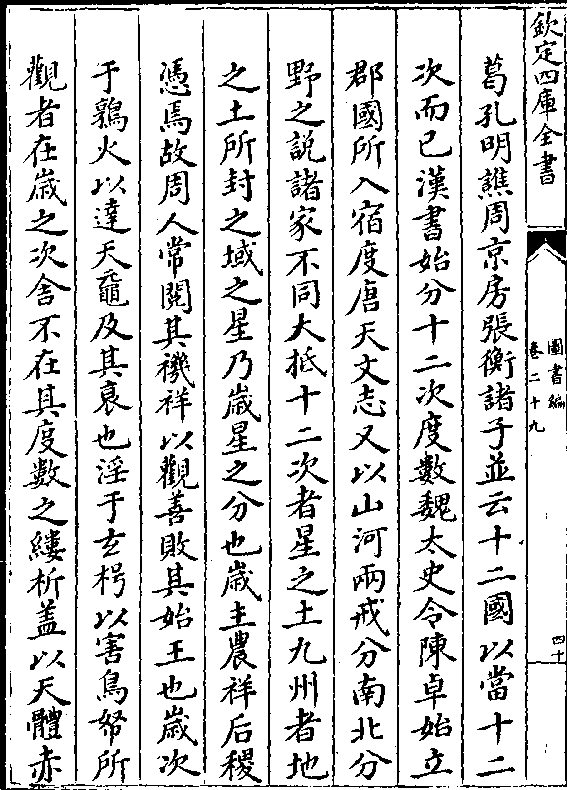 欽定四庫全書
圖書編
卷二十九
四十
葛孔明譙周京房張衡諸子並云十二國以當十二
次而已漢書始分十二次度數魏太史令陳卓始立
郡國所入宿度唐天文志又以山河兩戒分南北分
野之説諸家不同大抵十二次者星之土九州者地
之土所封之域之星乃歲星之分也歲主農祥后稷
憑焉故周人常閱其禨祥以觀善敗其始王也歲次
于鶉火以達天黿及其衰也淫于玄枵以害鳥帑所
觀者在歲之次舍不在其度數之縷析盖以天體赤